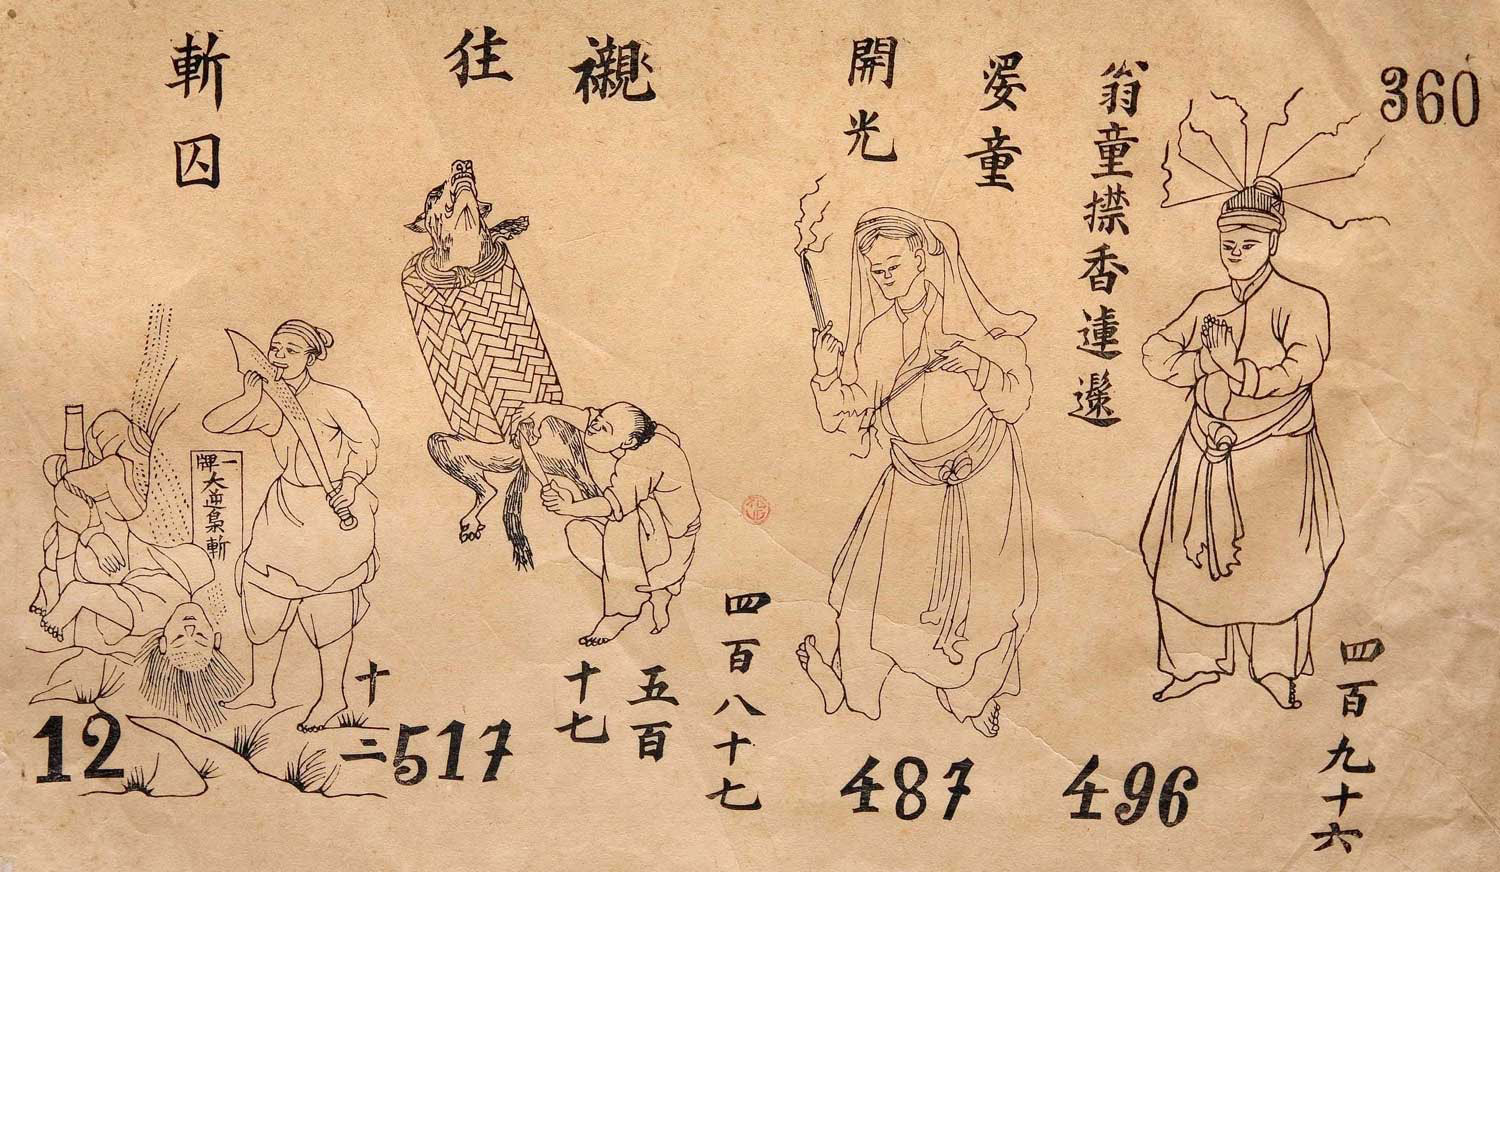 360
翁童㩒香
婆童
開光
襯
往
斬囚
一牌大逆梟斬
四百九十六
496
487
四百八十七
五百
十七
517
十二
12